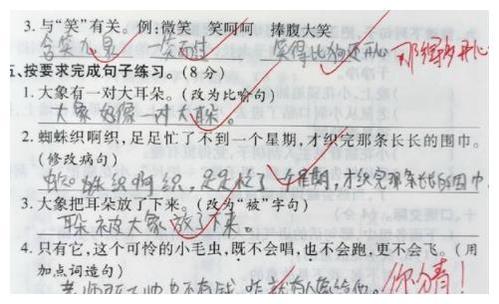 3. 与“笑”有关。例:微笑 笑呵呵 捧腹大笑
含笑九泉 笑而过 笑得比狗还开心 那得多开心
五、按要求完成句子练习。(8分)
1. 大象有一对大耳朵。(改为比喻句)
大象像一对大耳朵。
2. 蜘蛛织啊织,足足忙了不到一个星期,才织完那条长长的围巾。
(修改病句)
蜘蛛织啊织,足足忙了一个星期,才织完那条长长的围巾
3. 大象把耳朵放了下来。(改为“被”字句)
耳朵被大象放了下来。
4. 只有它,这个可怜的小毛虫,既不会唱,也不会跑,更不会飞。(用
加点词造句)
你别猜!